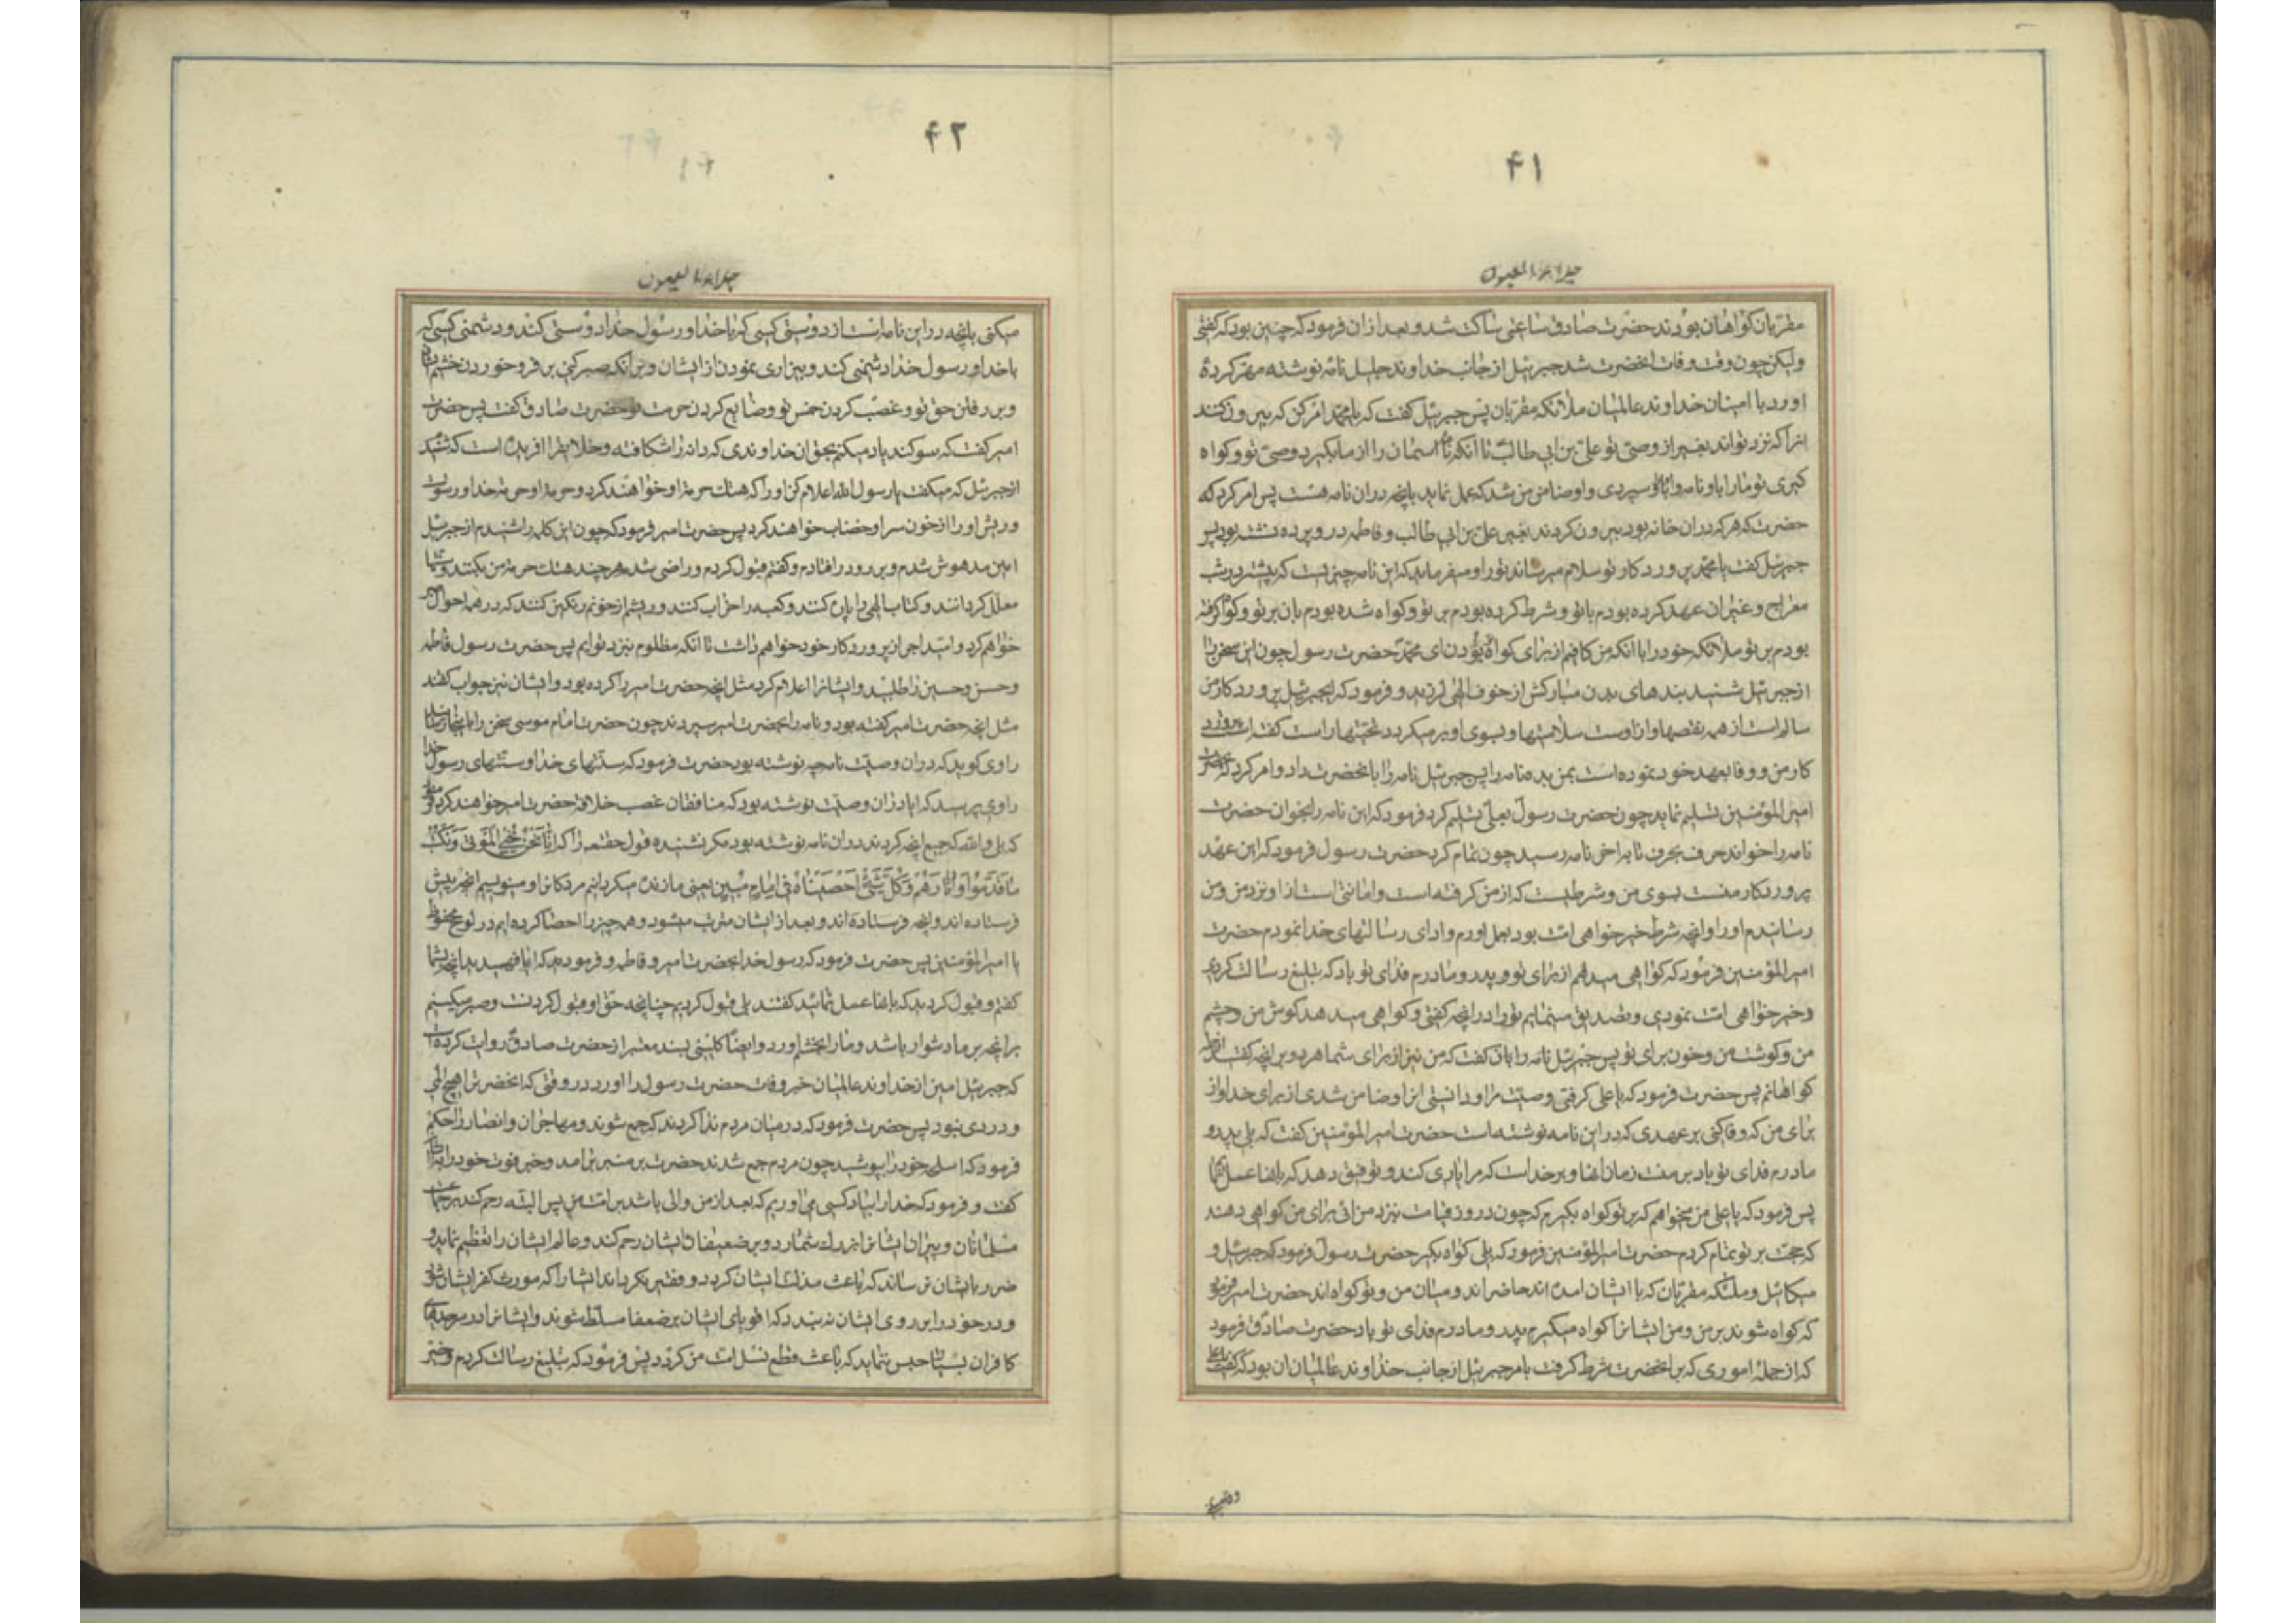 ۴۱
جلاء العیون
مقربان کواهان بودند حضرت صادق ساعتی ساکت شد و بعد از ان فرمود که چنین بود که کفتی
ولیکن چون وقت وفات انحضرت شد جبرئیل از جانب خداوند جلیل نامهٔ نوشته مهر کردهٔ
اورد با امینان خداوند عالمیان ملائکه مقربان پس جبرئیل کفت که یا محمد امر کن که بیرون کنند
انرا که نزد تواند بغیر از وصی تو علی بن ابی طالب تا انکه نامه اسمان را از ما بکیرد وصی تو و کواه
کیری تو ما را باو نامه را باو سپردی و او ضامن من شد که عمل نماید بانچه در ان نامه هست پس امر کرد که
حضرت که هر که در ان خانه بود بیرون کردند بغیر علی بن ابی طالب و فاطمه در و پرده نشسته بود پس
جبرئیل کفت یا محمد پروردکار تو سلام میرساند تو را و میفرماید که این نامه چیزیست که پیشتر در شب
معراج و غیر ان عهد کرده بودم با تو و شرط کرده بودم بر تو و کواه شده بودم بان بر تو و کواه کرفته
بودم بر تو ملائکه خود را با انکه من کافیم از برای کواه بودن ای محمد حضرت رسول چون این سخن را
از جبرئیل شنید بندهای بدن مبارکش از خوف الهی لرزید و فرمود که ایجبرئیل پروردکار من
سالم است از همه نقصها و از اوست سلامتیها و بسوی او بر میکردد تحیتها راست کفته است پرورد
کار من و وفا بعهد خود نموده است بمن بده نامه را پس جبرئیل نامه را بانحضرت داد و امر کرد که بحضرت
امیر المؤمنین تسلیم نماید چون حضرت رسول بعلی تسلیم کرد فرمود که این نامه را بخوان حضرت
نامه را خواند حرف بحرف تا باخر نامه رسید چون تمام کرد حضرت رسول فرمود که این عهد
پروردکار منست بسوی من و شرطیست که از من کرفته است و امانتی است از او نزد من و من
رسانیدم او را و انچه شرط خیر خواهی امت بود بعمل اوردم و ادای رسالتهای خدا نمودم حضرت
امیر المؤمنین فرمود که کواهی میدهم از برای تو و پدر و مادرم فدای تو باد که تبلیغ رسالت کردی
و خیر خواهی امت نمودی و تصدیق مینمایم تو را در انچه کفتی و کواهی میدهد کوش من و چشم
من و کوشت من و خون برای تو پس جبرئیل نامه را بان کفت که من نیز از برای شما هر دو بر انچه کفتید از
کواهانم پس حضرت فرمود که یا علی کرفتی وصیت مرا و دانستی انرا و ضامن شدی از برای خدا و از
برای من که وفا کنی بر عهدی که در این نامه نوشته است حضرت امیر المؤمنین کفت که بلی پدر و
مادرم فدای تو باد بر منست زمان انها و بر خداست که مرا یاری کند و توفیق دهد که بانها عمل نمایم
پس فرمود که یا علی من میخواهم که بر تو کواه بکیرم که چون در روز قیامت بنزد من ائی برای من کواهی دهند
که حجت بر تو تمام کردم حضرت امیر المؤمنین فرمود که بلی کواه بکیر حضرت رسول فرمود که جبرئیل و
میکائیل و ملئکه مقربان که با ایشان امده اند حاضراند و میان من و تو کواه اند حضرت امیر فرمود
که کواه شوند بر من و من ایشانرا کواه میکیرم پدر و مادرم فدای تو باد حضرت صادق فرمود
که از جمله اموری که بر انحضرت شرط کرفت بامر جبرئیل از جانب خداوند عالمیان ان بود که کفت یا علی
وفا
۴۲
جلاء العیون
میکنی بانچه در این نامه است از دوستی کسی که با خدا و رسول خدا دوستی کند و دشمنی کسی که
با خدا و رسول خدا دشمنی کند و بیزاری نمودن از ایشان و بر انکه صبر کنی بر فرو خوردن خشم
و بر رفتن حق تو و غصب کردن خمس تو و ضایع کردن حرمت تو حضرت صادق کفت پس حضرت
امیر کفت که سوکند یاد میکنم بحق ان خداوندی که دانه را شکافته و خلایق را افریده است که شنیدم
از جبرئیل که میکفت یا رسول الله اعلام کن او را که هتک حرمة او خواهند کرد و حرمة او حرمة خدا و رسول است
و ریش او را از خون سر او خضاب خواهند کرد پس حضرت امیر فرمود که چون این کلمه را شنیدم از جبرئیل
امین مدهوش شدم و بر رو در افتادم و کفتم قبول کردم و راضی شدم هر چند هتک حرمة من بکنند و سنتها
معطل کردانند و کتاب الهی را پاره کنند و کعبه را خراب کنند و ریشم از خونم رنکین کنند که در همه احوال صبر
خواهم کرد و امید اجر از پروردکار خود خواهم داشت تا انکه مظلوم بنزد تو ایم پس حضرت رسول فاطمه
و حسن و حسین را طلبید و ایشانرا اعلام کرد مثل انچه حضرت امیر را کرده بود و ایشان نیز جواب کفتند
مثل انچه حضرت امیر کفته بود و نامه را بحضرت امیر سپردند چون حضرت امام موسی سخن را باینجا رسانید
راوی کوید که در ان وصیت نامچه نوشته بود حضرت فرمود که سنتهای خدا و سنتهای رسول خدا
راوی پرسید که ایا در ان وصیت نوشته بود که منافقان غصب خلافة حضرت امیر خواهند کرد فرمود
که بلی والله که جمیع انچه کردند در ان نامه نوشته بود مکر نشنیده قول حقتعه را که إِنَّا نَحْنُ نُحْيِي الْمَوْتَى وَنَكْتُبُ
مَا قَدَّمُوا وَآثَارَهُمْ وَكُلَّ شَيْءٍ أَحْصَيْنَاهُ فِي إِمَامٍ مُبِينٍ یعنی ما زنده میکردانیم مردکانرا و مینویسیم انچه پیش
فرستاده اند و انچه فرستاده اند و بعد از ایشان مترتب میشود و همه چیز را احصا کرده ایم در لوح محفوظ
یا امیر المؤمنین پس حضرت فرمود که رسول خدا بحضرت امیر و فاطمه و فرمود که ایا فهمیدید انچه بشما
کفتم و قبول کردید که بانها عمل نمائید کفتند بلی قبول کردیم چنانچه حق او قبول کردنست و صبر میکنیم
بر انچه بر ما دشوار باشد و ما را بخشم اورد و ایضا کلینی بسند معتبر از حضرت صادق روایت کرده است
که جبرئیل امین از خداوند عالمیان خبر وفات حضرت رسول را اورد در وقتی که انحضرت را هیچ المی
و دردی نبود پس حضرت فرمود که در میان مردم ندا کردند که جمع شوند و مهاجران و انصار را حکم
فرمود که اسلحه خود را بپوشید چون مردم جمع شدند حضرت بر منبر برامد و خبر فوت خود را بایشان
کفت و فرمود که خدا را بیاد کسی می اوریم که بعد از من والی باشد بر امت من پس البته رحم کند بر جماعت
مسلمانان و پیران ایشانرا بزرك شمارد و بر ضعیفان ایشان رحم کند و عالم ایشان را تعظیم نماید و
ضرر بایشان نرساند که باعث مذلت ایشان کردد و فقیر نکرداند ایشانرا که مورث کفر ایشان شود
و در خود را بر روی ایشان نه بندد که اقویای ایشان بر ضعفا مسلط شوند و ایشانرا در سرحدهای
کافران بسیار حبس ننماید که باعث قطع نسل امت من کردد پس فرمود که تبلیغ رسالت کردم و خیر